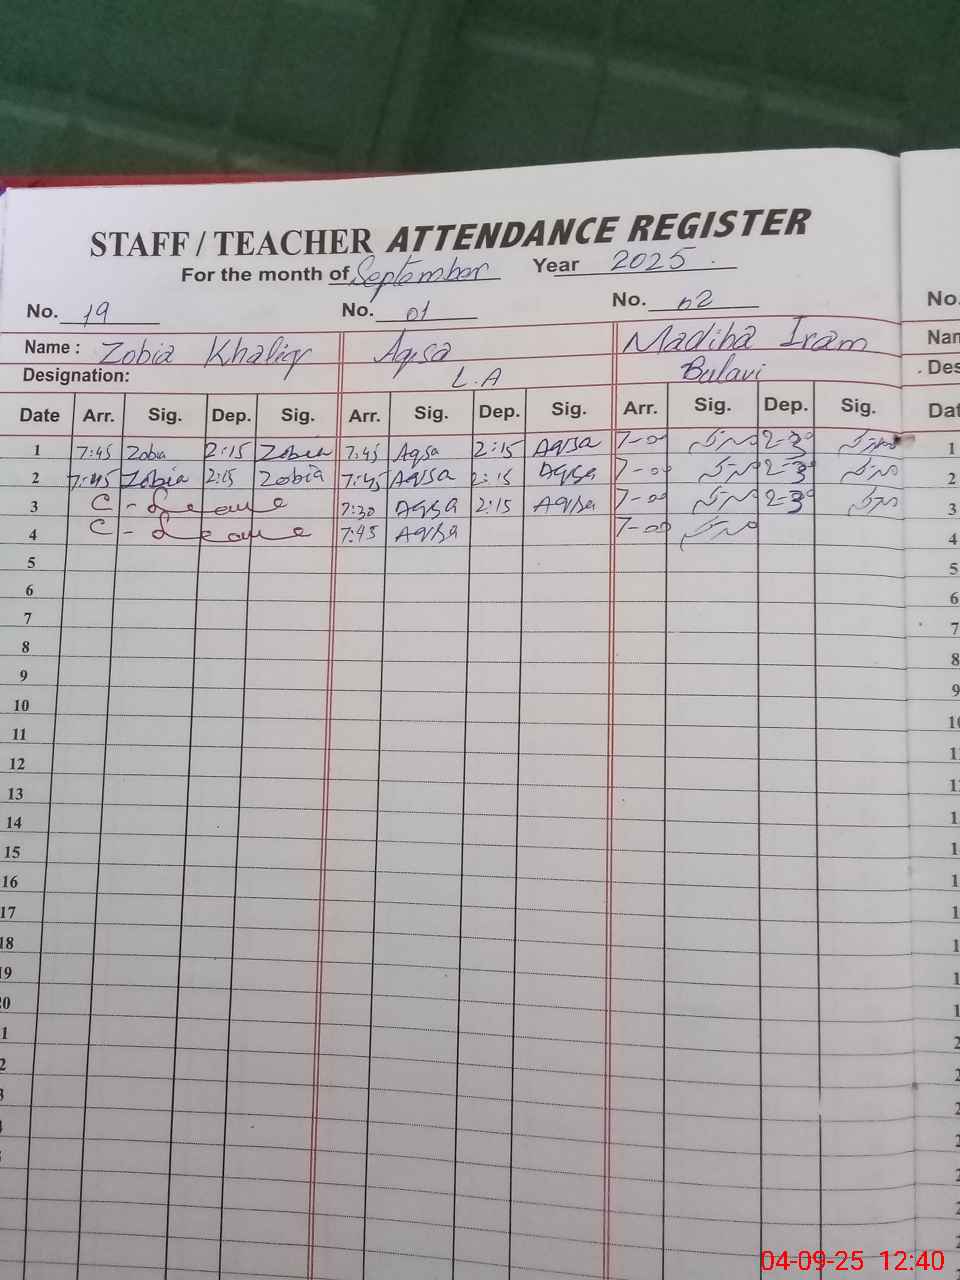 STAFF / TEACHER ATTENDANCE REGISTER
For the month of September Year 2025
No. 19 No. 01 No. 02 No.
Name : Zobia Khaliq Aqsa Madiha Iram Nam
Designation: L.A Bulavi Des
Date Arr. Sig. Dep. Sig. Arr. Sig. Dep. Sig. Arr. Sig. Dep. Sig. Dat
1 7:45 Zobia 2:15 Zobia 7:45 Aqsa 2:15 Aqsa 7-00 2-30 1
2 7:45 Zobia 2:15 Zobia 7:45 Aqsa 2:15 Aqsa 7-00 2-30 2
3 C - Leave 7:30 Aqsa 2:15 Aqsa 7-00 2-30 3
4 C - Leave 7:45 Aqsa 7-00 4
5 5
6 6
7 7
8 8
9 9
10 10
11 11
12 1
13 1
14 1
15 1
16 1
17 1
18 1
19 1
20 1
1 2
2 2
3 2
04-09-25 12:40